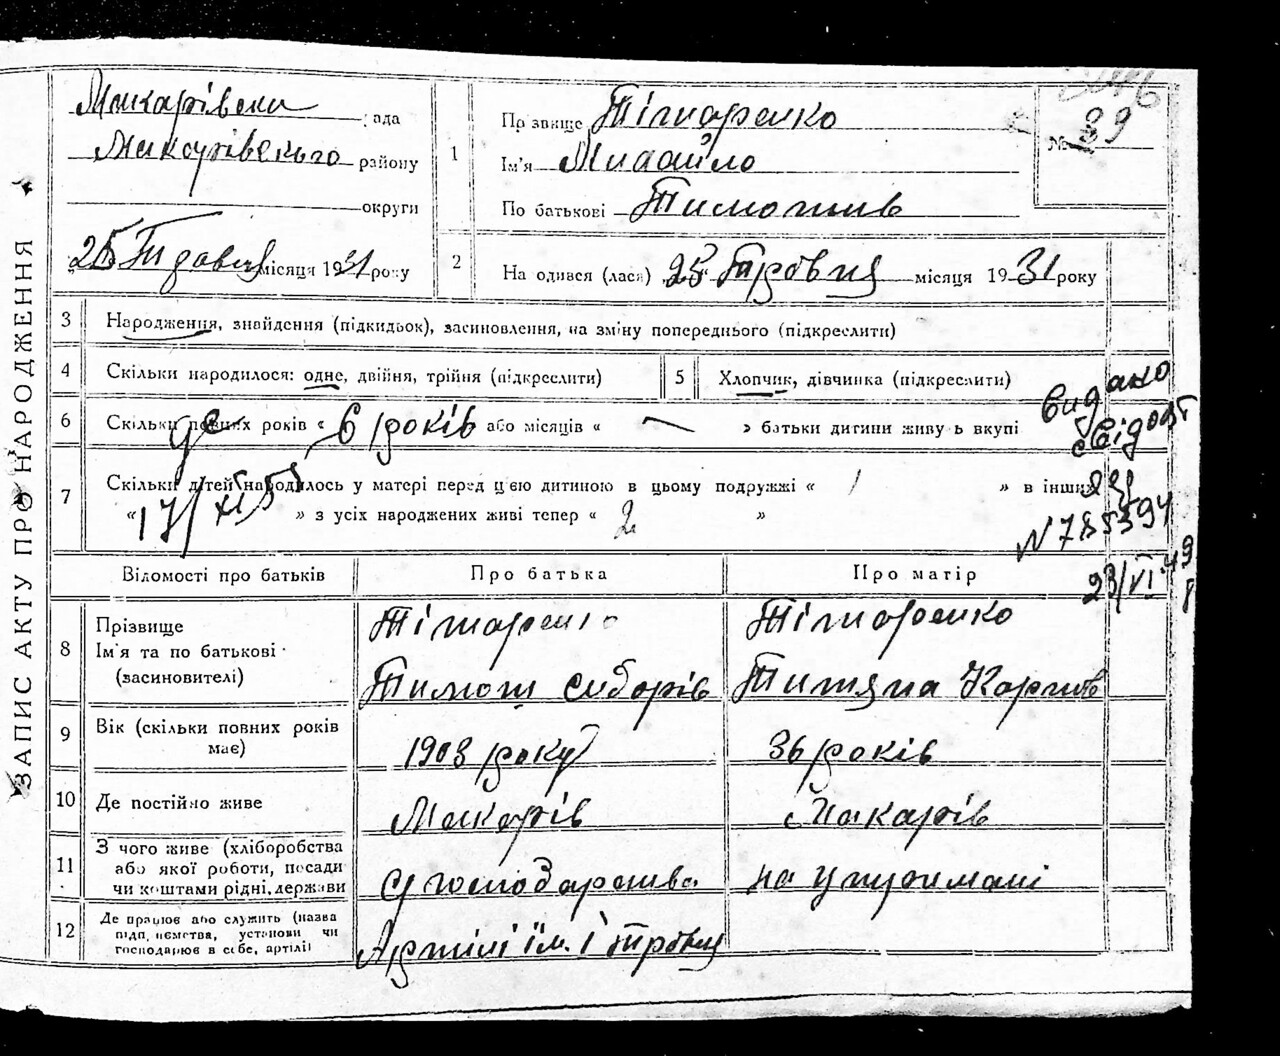 ЗАПИС АКТУ ПРО НАРОДЖЕННЯ
Макарівська рада
Макарівського району
округи
25 Травня місяця 1931 року
1
Прізвище Тітаренко
Ім'я Михайло
По батькові Тимошів
№ 39
2
Народився (лася) 25 Травня місяця 1931 року
3 Народження, знайдення (підкидьок), засиновлення, на зміну попереднього (підкреслити)
4 Скільки народилося: одне, двійня, трійня (підкреслити)
5 Хлопчик, дівчинка (підкреслити)
6 Скільки повних років « 6 років або місяців « — » батьки дитини живуть вкупі
7 Скільки дітей народилось у матері перед цією дитиною в цьому подружжі « 1 » в інших
« » з усіх народжених живі тепер « 2 »
17/XI 55
Видано
свідоцт
№ 785594
23/VI 49 р
Відомості про батьків Про батька Про матір
8 Прізвище Тітаренко Тітаренко
Ім'я та по батькові
(засиновителі) Тимош Сидорів Титяна Карпов
9 Вік (скільки повних років
має) 1903 року 36 років
10 Де постійно живе Макарів Макарів
11 З чого живе (хліборобства
або якої роботи, посади
чи коштами рідні, держави с господарства на утримані
12 Де працює або служить (назва
підприємства, установи чи
господарює в себе, артілі) Артілі їм. 1 травня